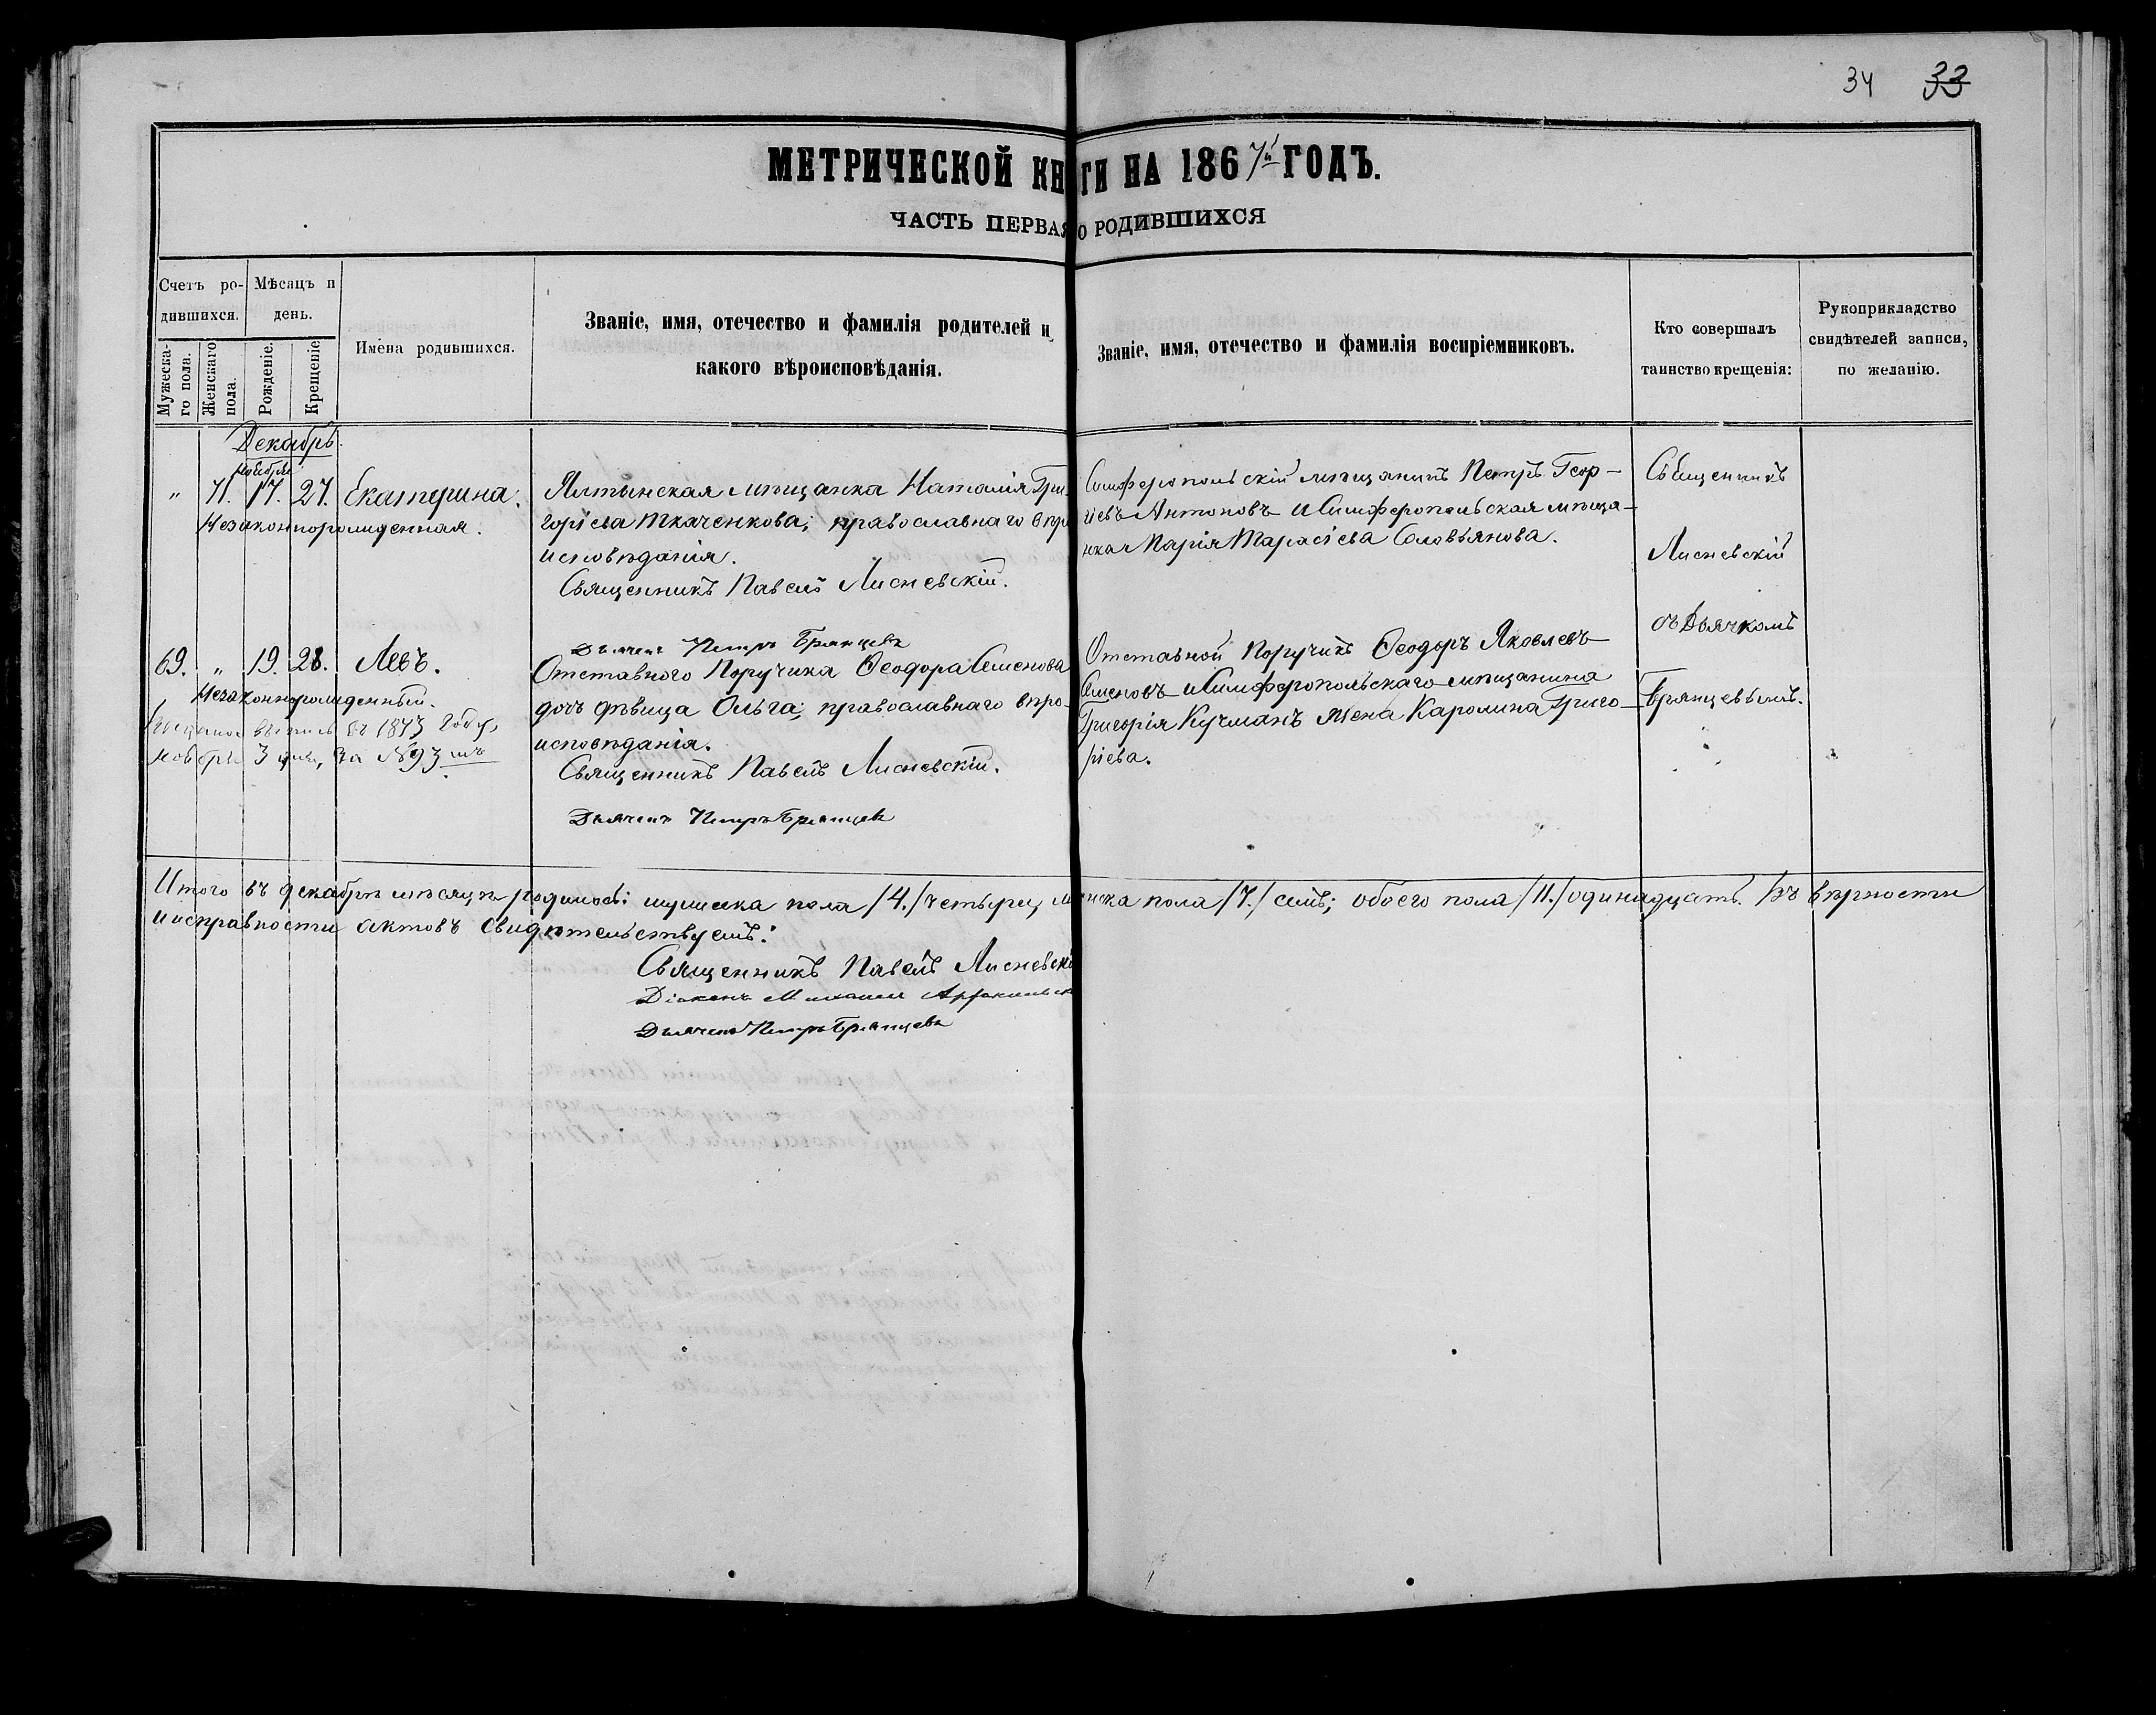 34 33
МЕТРИЧЕСКОЙ КНИГИ НА 1867й ГОДЪ.
ЧАСТЬ ПЕРВАЯ О РОДИВШИХСЯ
Счетъ ро-
дившихся.
Мѣсяцъ и
день.
Мужеска-
го пола.
Женскаго
пола.
Рожденіе.
Крещеніе
Имена родившихся.
Званіе, имя, отечество и фамилія родителей и
какого вѣроисповѣданія.
Званіе, имя, отечество и фамилія воспріемниковъ.
Кто совершалъ
таинство крещенія:
Рукоприкладство
свидѣтелей записи,
по желанію.
Декабрь.
Ноября
" 71. 17. 27. Екатерина.
Незаконнорожденная.
Ялтынская мѣщанка Наталія Гри-
горіева Ткаченкова; православнаго вѣро
исповѣданія.
Священникъ Павелъ Лисневскій.
Дьячекъ Петръ Брянцевъ
Симферопольскій мѣщанинъ Петръ Геор-
іевъ Антоновъ и Симферопольская мѣща-
нка Марія Тарасіева Соловьянова.
Священникъ
Лисневскій
съ Дьячкомъ
Брянцевымъ.
69. " 19. 28. Левъ.
Незаконнорожденный.
выпись въ 1873 году,
ноября 3 дня, за №93мъ
Отставного Поручика Ѳеодора Семенова
дочь дѣвица Ольга; православнаго вѣро-
исповѣданія.
Священникъ Павелъ Лисневскій.
Дьячекъ Петръ Брянцевъ
Отставной Поручикъ Ѳеодоръ Яковлевъ
Семеновъ и Симферопольскаго мѣщанина
Григорія Кучманъ жена Каролина Григо-
ріева.
Итого въ декабрѣ мѣсяцѣ родилось: мужеска пола /4./ четыре, женска пола /7./ семь; обоего пола /11./ одинадцать. Въ вѣрности
и исправности актовъ свидѣтельствуемъ:
Священникъ Павелъ Лисневскій
Діаконъ Михаилъ
Дьячекъ Петръ Брянцевъ